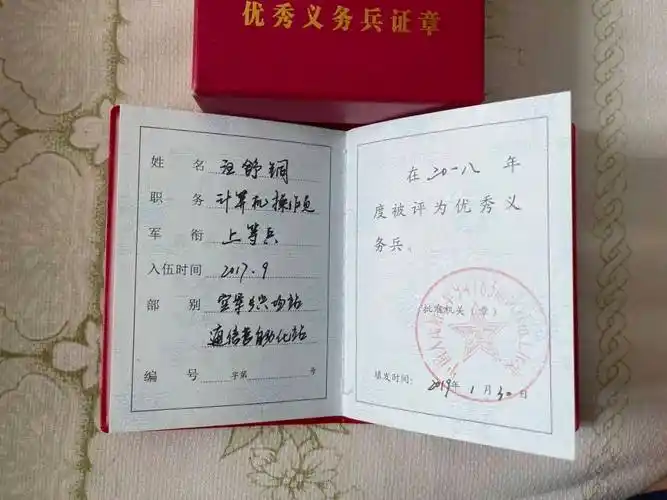 优秀义务兵证章
姓 名 汪舒锎
职 务 计算机操作员
军 衔 上等兵
入伍时间 2017.9
部 别 空军
通信营自动化站
编 号 字第 号
在二〇一八年
度被评为优秀义
务兵。
批准机关(章)
填发时间: 2019年1月30日